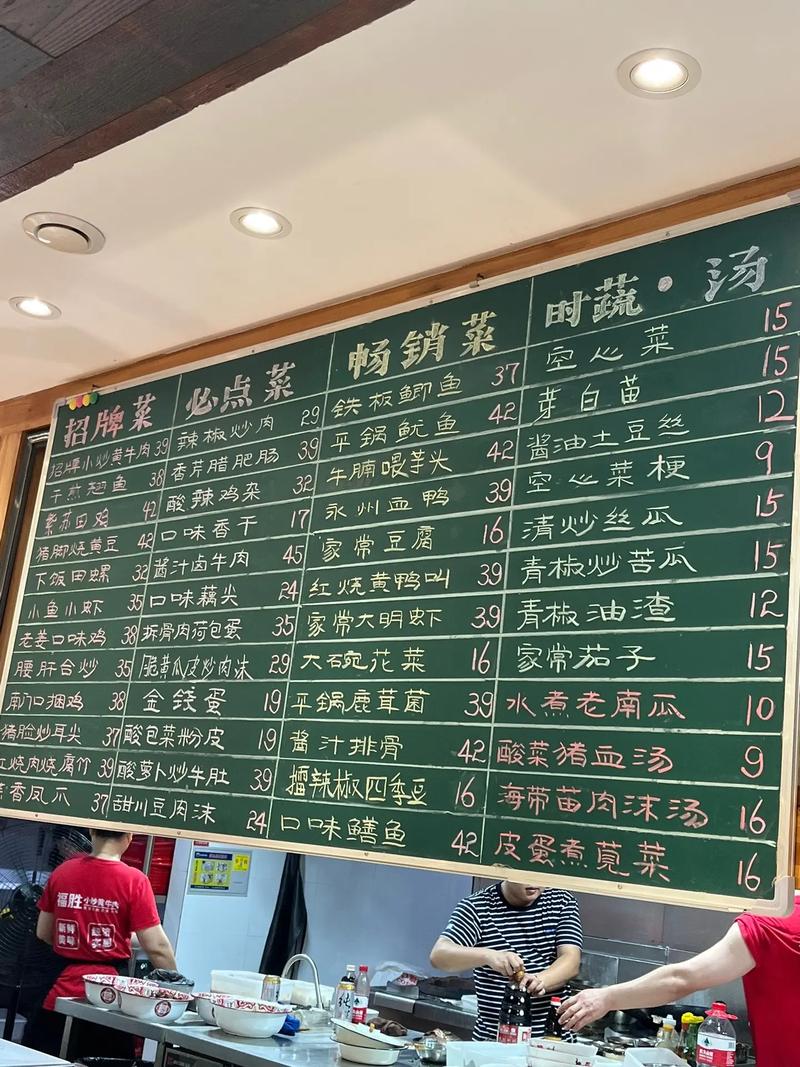 招牌菜
招牌小炒黄牛肉 39
干煎翘鱼 38
紫苏田鸡 42
猪脚烧黄豆 42
下饭田螺 32
小鱼小虾 35
老姜口味鸡 38
腰肝合炒 35
南门口捆鸡 38
猪脸炒耳尖 37
红烧肉烧腐竹 39
香凤爪 37
必点菜
辣椒炒肉 29
香芹腊肥肠 39
酸辣鸡杂 32
口味香干 17
酱汁卤牛肉 45
口味藕尖 24
拆骨肉荷包蛋 35
脆黄瓜皮炒肉沫 29
金钱蛋 19
酸包菜粉皮 19
酸萝卜炒牛肚 39
甜川豆肉沫 24
畅销菜
铁板鲫鱼 37
平锅鱿鱼 42
牛腩喂芋头 42
永州血鸭 39
家常豆腐 16
红烧黄鸭叫 39
家常大明虾 39
大碗花菜 16
平锅鹿茸菌 39
酱汁排骨 42
擂辣椒四季豆 16
口味鳝鱼 42
时蔬·汤
空心菜 15
芽白苗 15
酱油土豆丝 12
空心菜梗 9
清炒丝瓜 15
青椒炒苦瓜 15
青椒油渣 12
家常茄子 15
水煮老南瓜 10
酸菜猪血汤 9
海带苗肉沫汤 16
皮蛋煮苋菜 16
福胜 小炒黄牛肉
新鲜